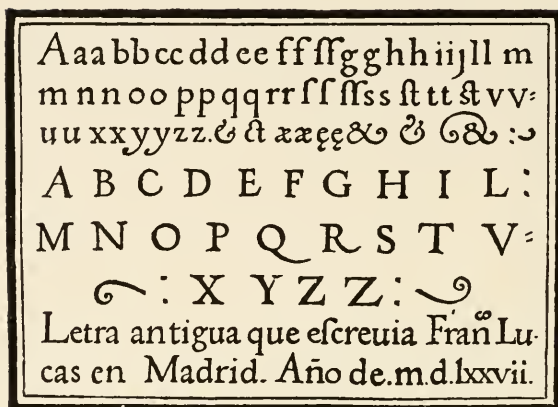 Aaabbccddeeffſſgghhiijllm
mnnooppqqrrſſſſssſttt&vv:
uuxxyyzz.&ſtææęę&&&:~
A B C D E F G H I L:
M N O P Q R S T V:
~: X Y Z Z:~
Letra antigua que eſcreuia Frañco Lu-
cas en Madrid. Año de.m.d.lxxvii.